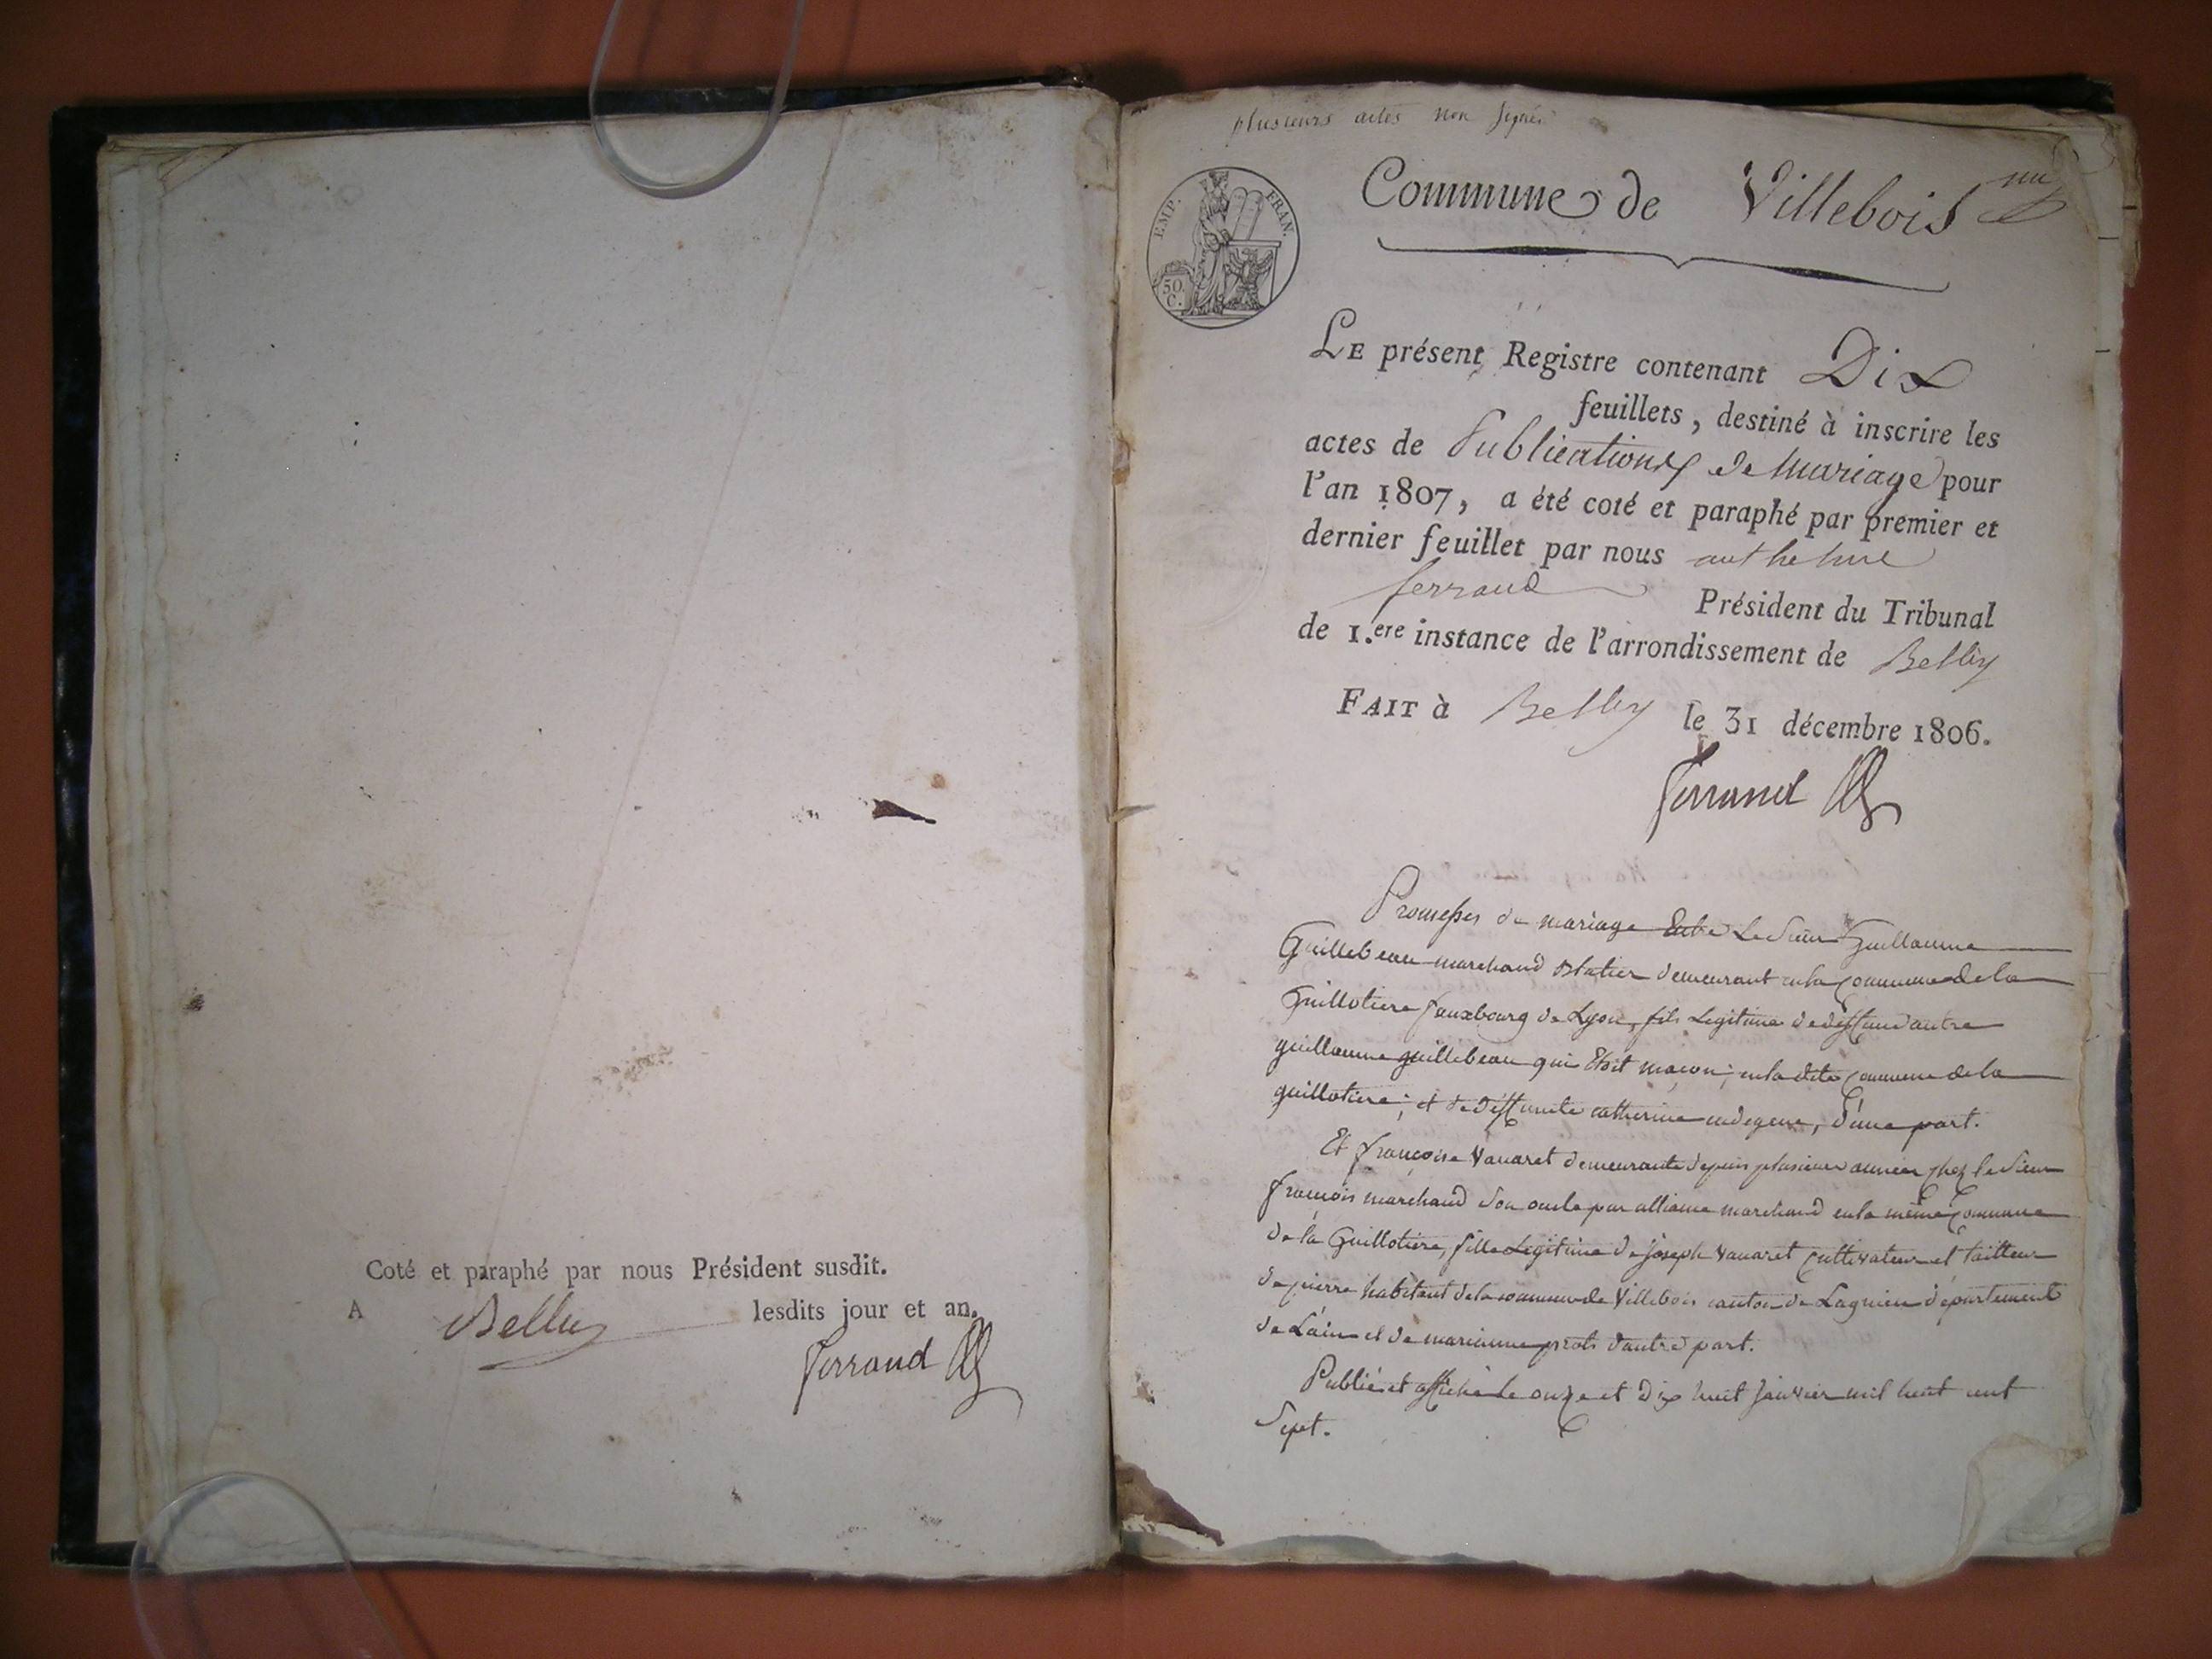 Coté et paraphé par nous Président susdit.
A Belley lesdits jour et an.
Ferrand
plusieurs actes non signés
EMP. FRAN.
50. C.
Commune de Villebois
LE présent Registre contenant Dix
feuillets, destiné à inscrire les
actes de Publications de Mariage pour
l'an 1807, a été coté et paraphé par premier et
dernier feuillet par nous anthelme
ferrand Président du Tribunal
de 1.ere instance de l'arrondissement de Belley
FAIT à Belley le 31 décembre 1806.
Ferrand
Promesses de mariage Entre Le Sieur Guillaume
Guillebeau marchand demeurant en la Commune de la
Guillotiere fauxbourg de Lyon, fils Legitime de deffunt autre
guillaume guillebeau qui Etoit maçon; en la dite Commune de la
guillotiere; et de deffunte catherine, d'une part.
Et françoise Vavaret demeurante depuis plusieurs années chez le Sieur
françois marchand son oncle par alliance marchand en la même Commune
de la Guillotiere, fille Legitime de joseph Vavaret cultivateur et tailleur
de pierre habitant de la commune de Villebois canton de Lagnieu département
de L'ain et de marianne d'autre part.
Publié et affiché le onze et dix huit janvier mil huit cent
Sept.